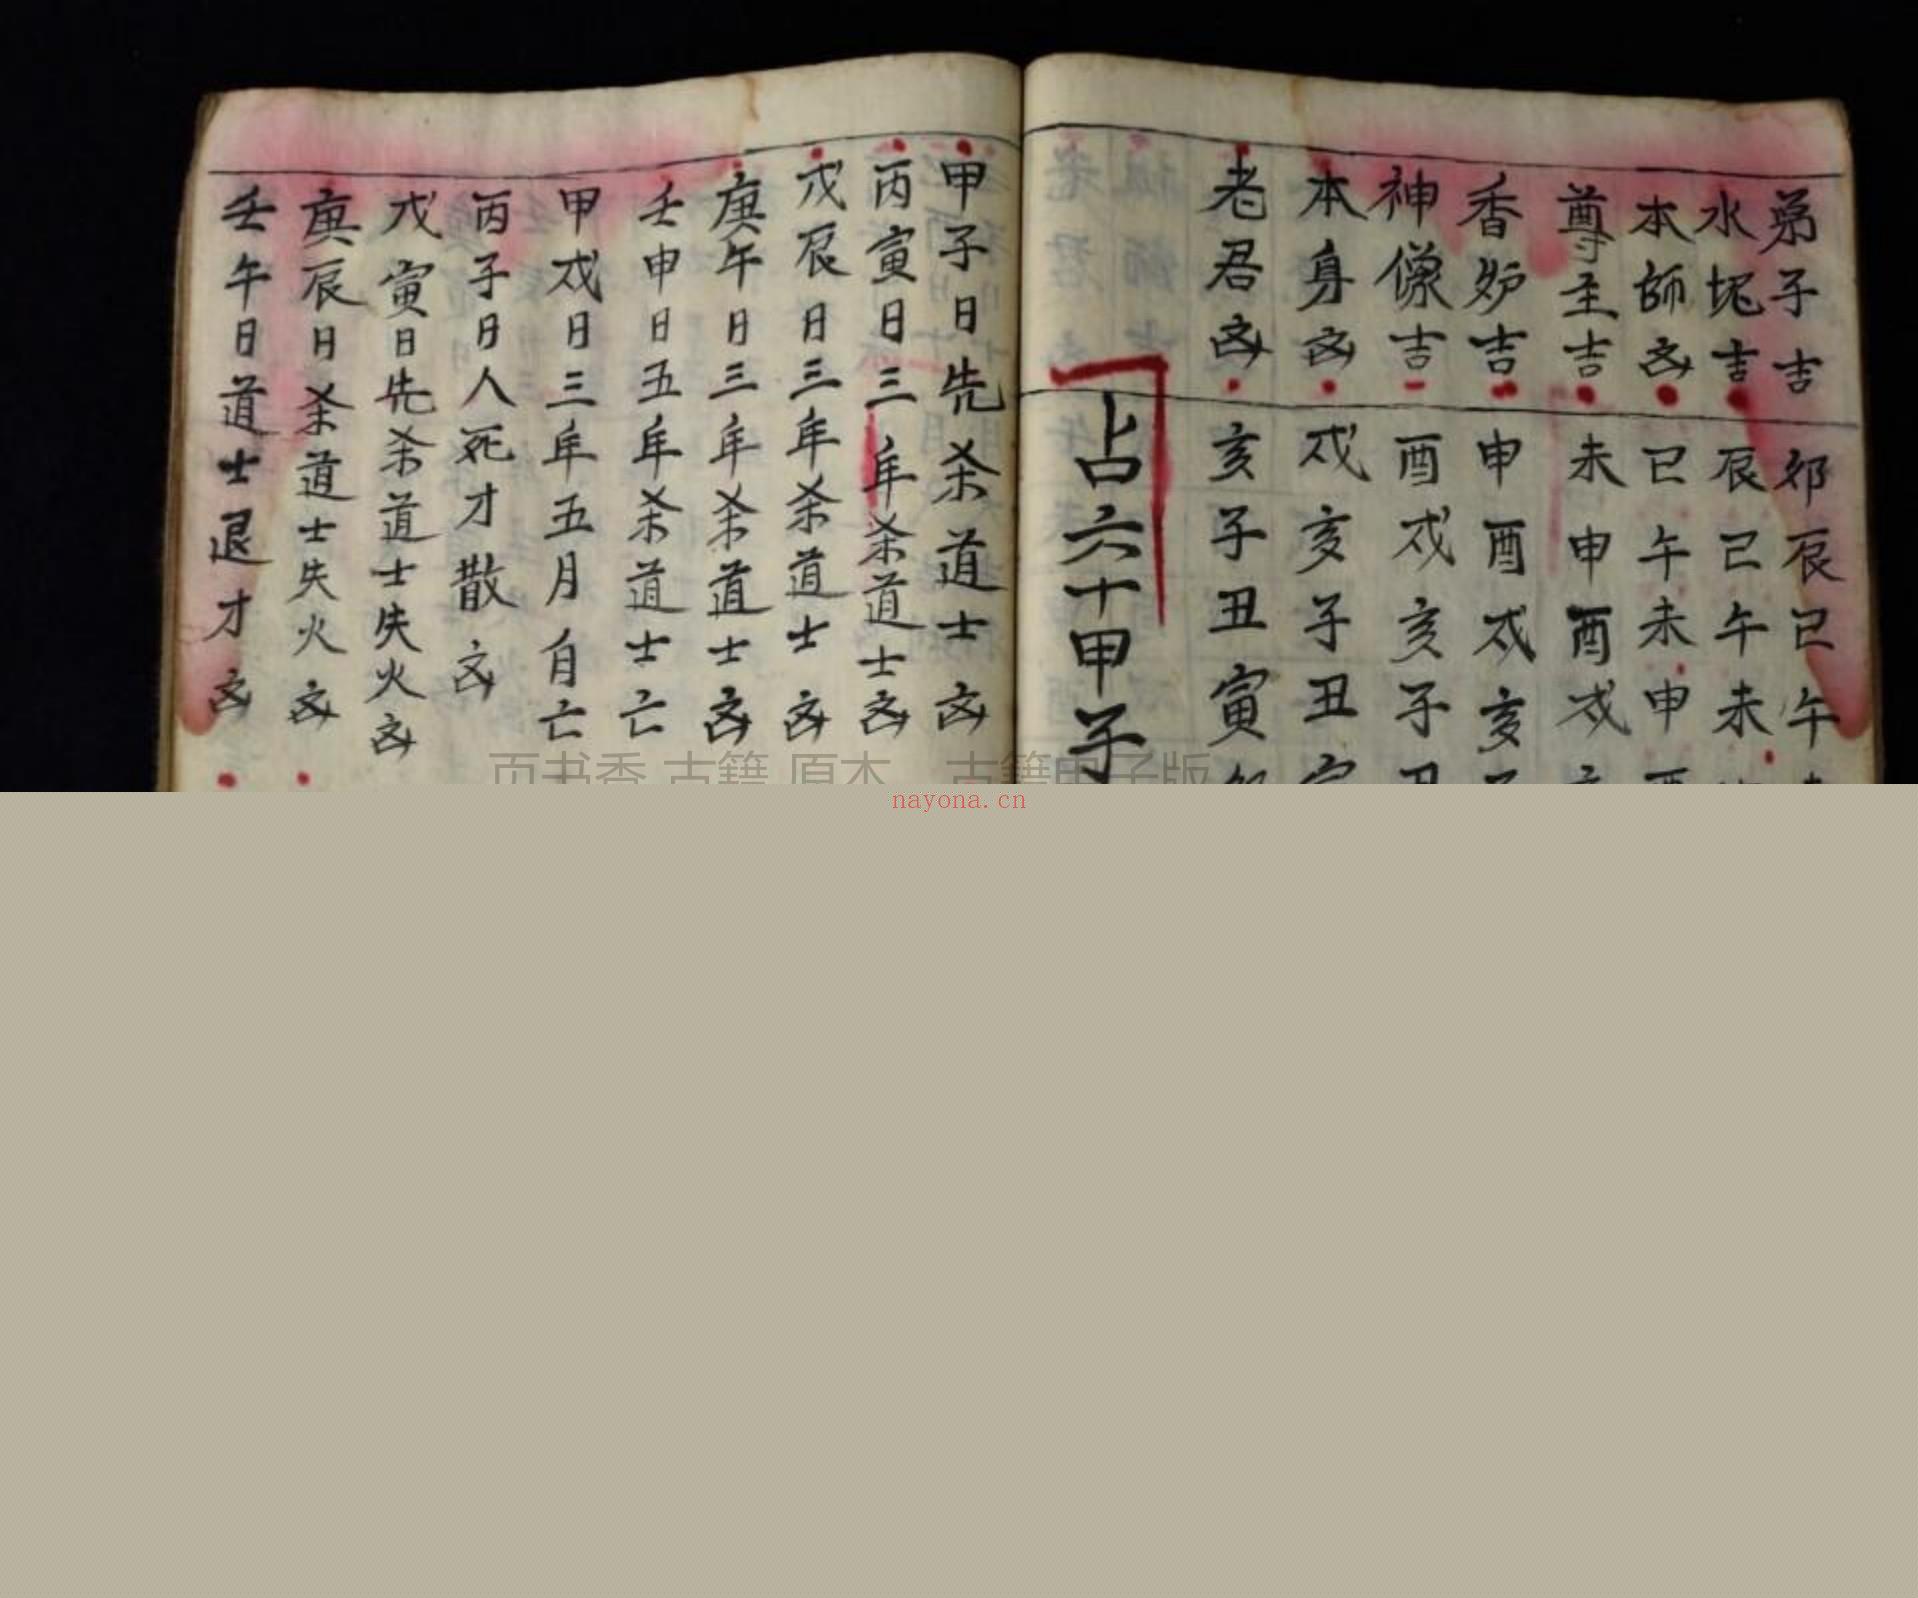 弟子吉 卯辰巳午
水塊吉 辰巳午未
本師凶 巳午未申酉
尊至吉 未申酉戌
香炉吉 申酉戌亥
神像吉 酉戌亥子丑
本身凶 戌亥子丑寅
老君凶 亥子丑寅
占六十甲子
甲子日先杀道士凶
丙寅日三年杀道士凶
戊辰日三年杀道士凶
庚午日三年杀道士凶
壬申日五年杀道士亡
甲戌日三年五月自亡
丙子日人死才散凶
戊寅日先杀道士失火凶
庚辰日杀道士失火凶
壬午日道士退才凶
nayona.cn